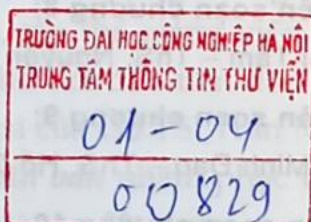 TRƯỜNG ĐẠI HỌC CÔNG NGHIỆP HÀ NỘI
TRUNG TÂM THÔNG TIN THƯ VIỆN
01-04
00829